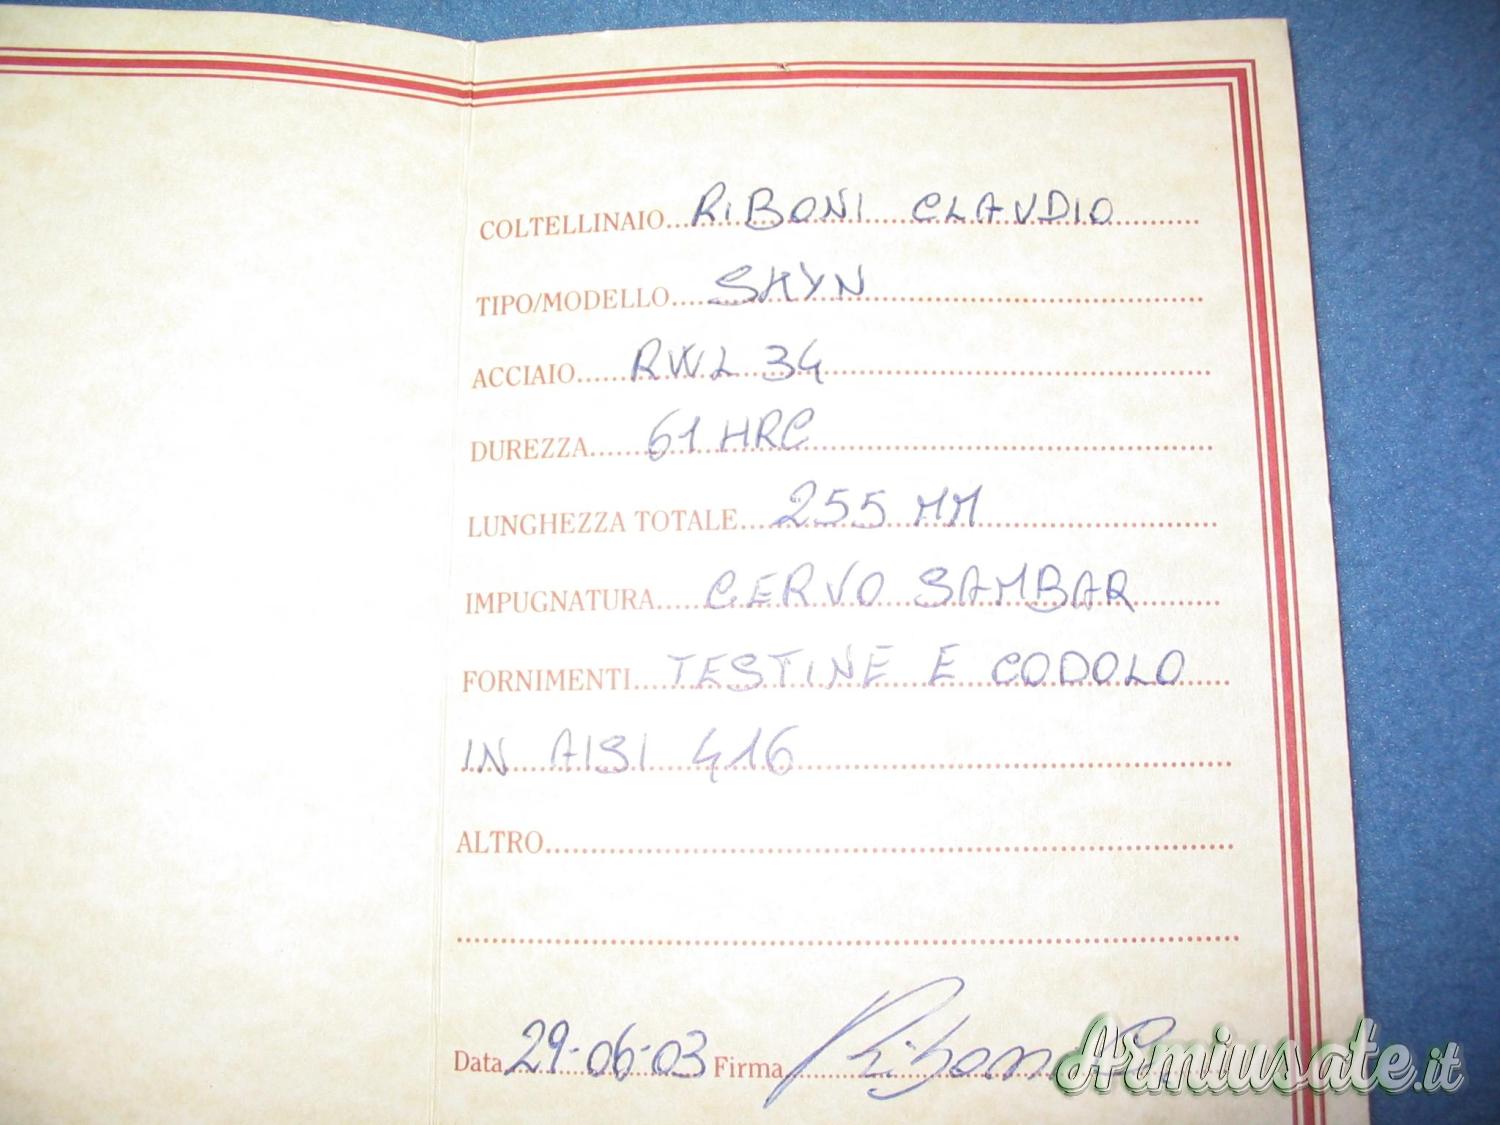 COLTELLINAIO...RIBONI CLAUDIO
TIPO/MODELLO...SHYN
ACCIAIO...RWL 34
DUREZZA...61 HRC
LUNGHEZZA TOTALE...255 MM
IMPUGNATURA...CERVO SAMBAR
FORNIMENTI...TESTINE E CODOLO
IN AISI 416
ALTRO...
Data 29-06-03 Firma Riboni C
Armiusate.it